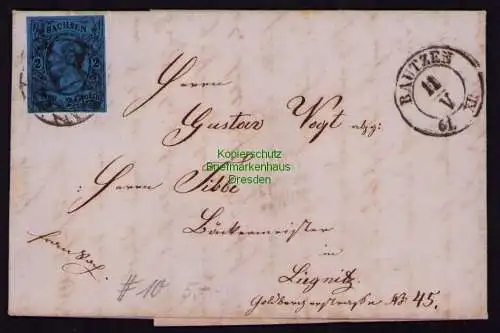 SACHSEN
2 2
BAUTZEN
11
V
61
Herrn
Gustav Vogt abzg:
Kopierschutz
Briefmarkenhaus
Dresden
Herrn Tibbe
Bäckermeister
in
Liegnitz
Goldbergerstraße № 45.
franco
#10 5,-